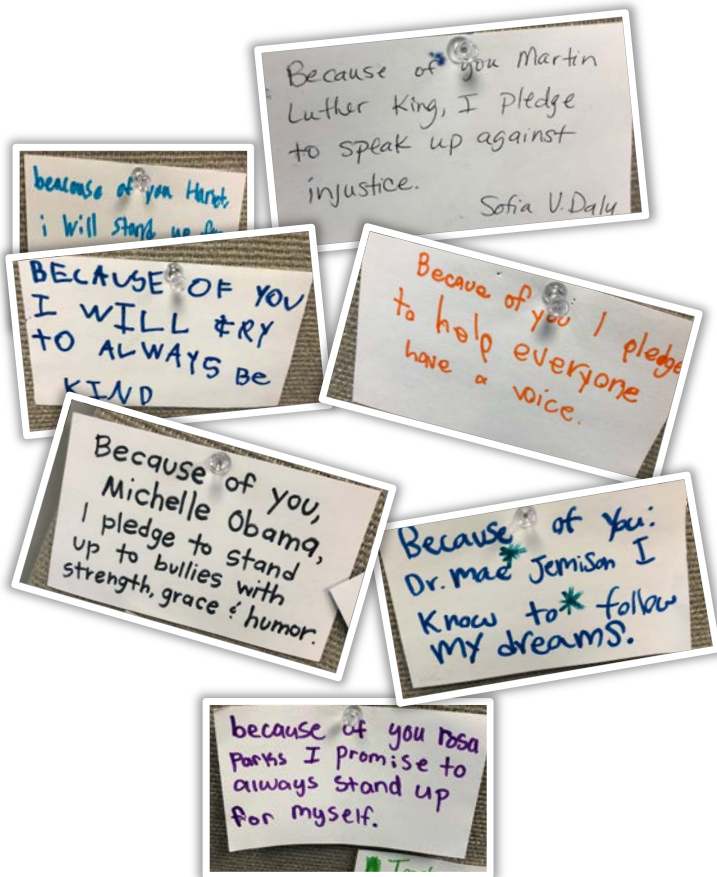 Because of you Martin
Luther King, I pledge
to speak up against
injustice.
Sofia V. Daly
beacause of you
i will stand up
BECAUSE OF YOU
I WILL TRY
TO ALWAYS BE
KIND
Becaue of you I pledge
to help everyone
have a voice.
Because of you,
Michelle Obama,
I pledge to stand
up to bullies with
strength, grace & humor.
Because of You:
Dr. mae Jemison I
Know to * follow
MY dreams.
because of you rosa
Parks I Promise to
always stand up
for myself.